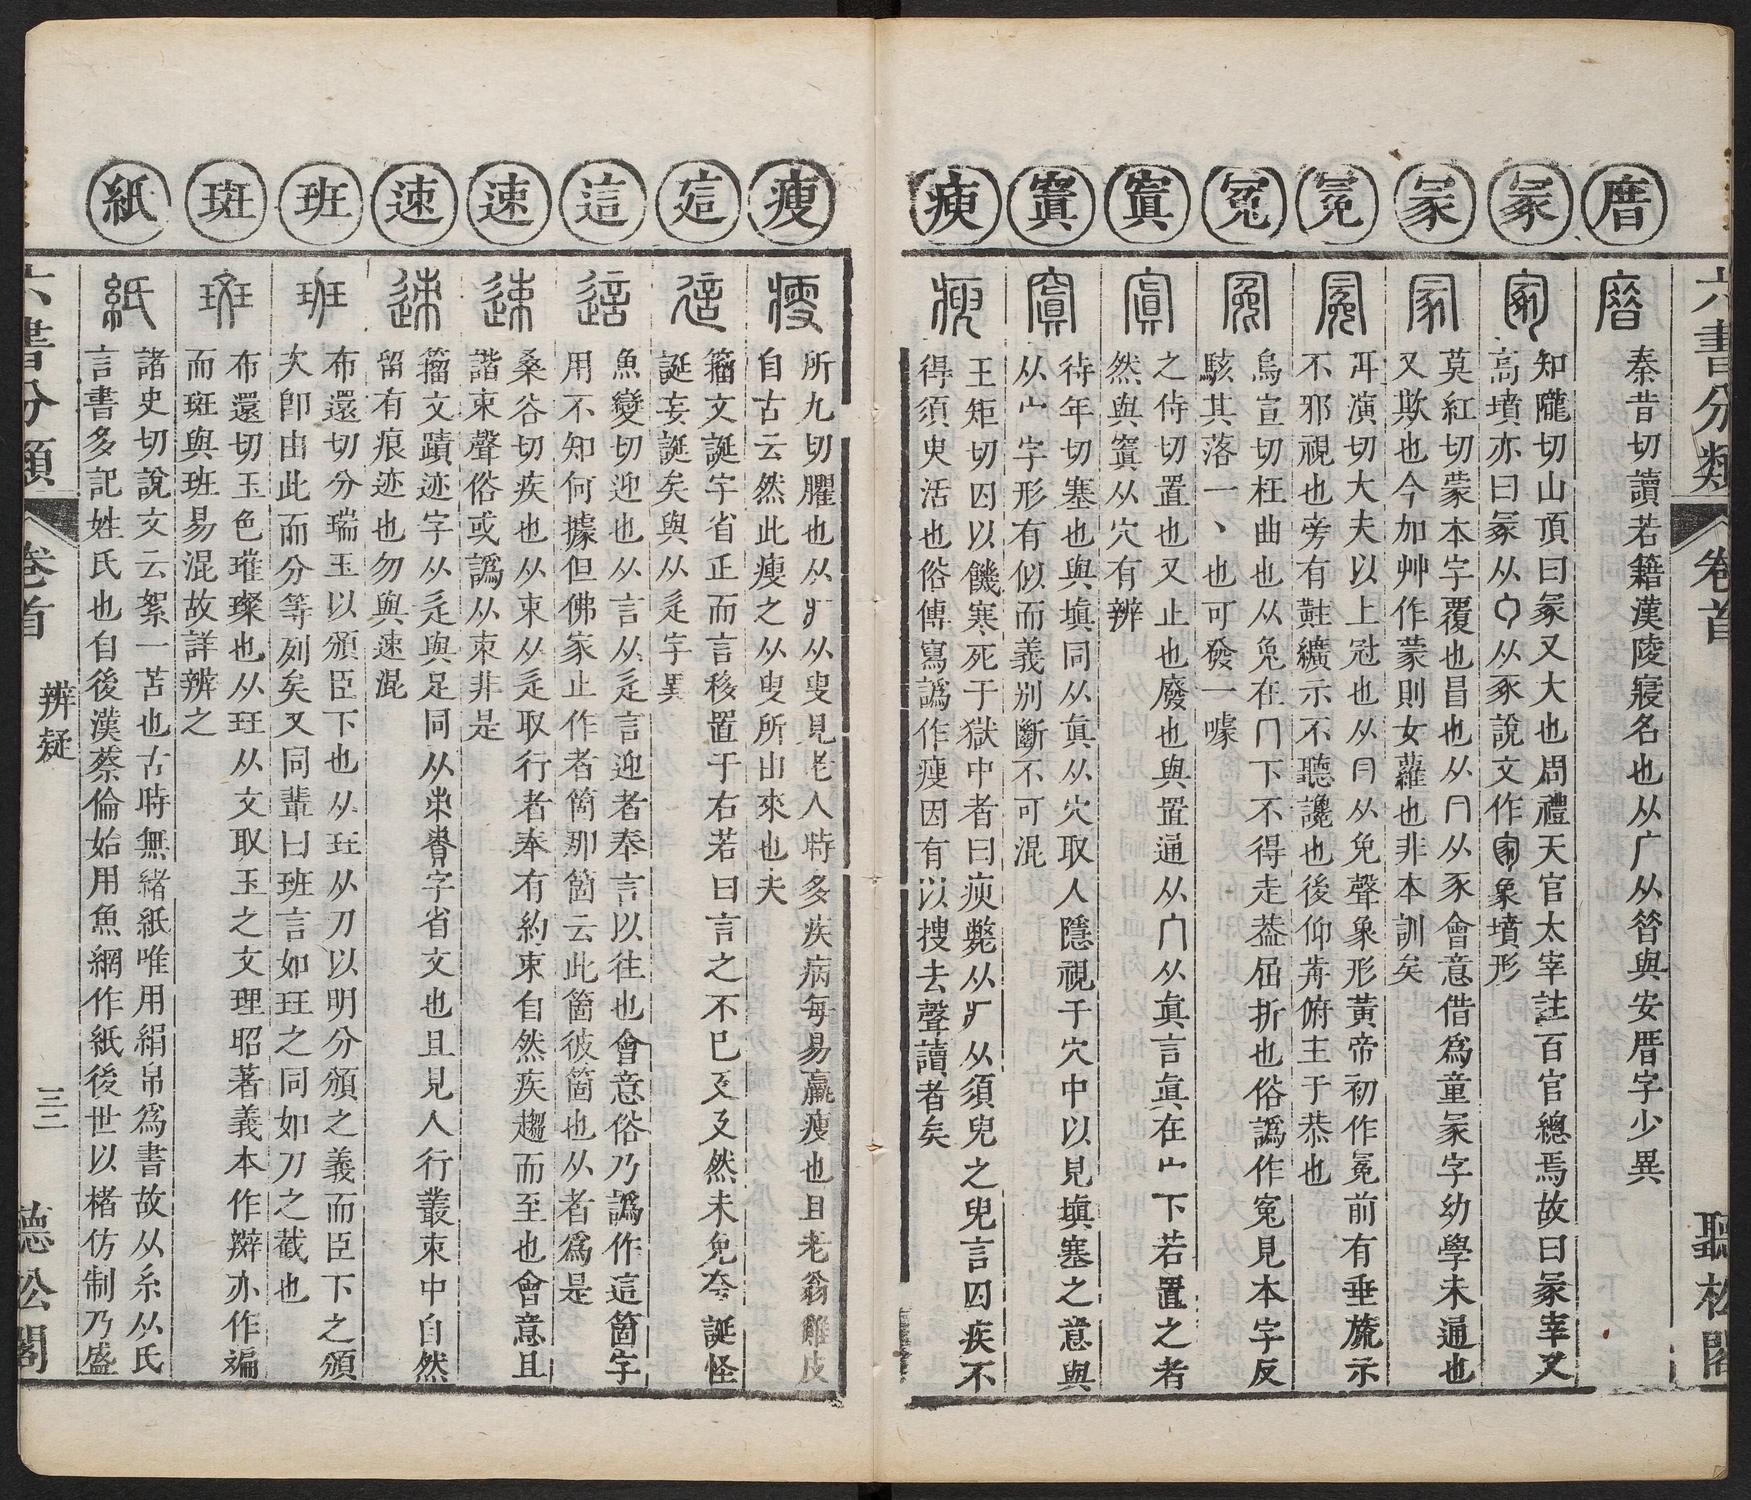 六書分類
卷首
聽松閣
厝
秦昔切讀若籍漢陵寢名也从广从㫺與安厝字少異
冢
知隴切山頂曰冡又大也周禮天官太宰註百官總焉故曰冡宰又
高墳亦曰冡从勹从豕說文作冢象墳形
冡
莫紅切蒙本字覆也昌也从冂从豕會意借爲童冡字幼學未通也
又欺也今加艸作蒙則女蘿也非本訓矣
冕
弭演切大夫以上冠也从冃从免聲象形黃帝初作冕前有垂旒示
不邪視也旁有黈纊示不聽讒也後仰前俯主于恭也
冤
烏宣切枉曲也从兔在冂下不得走葢屈折也俗譌作寃見本字反
駭其落一丶也可發一噱
寘
之侍切置也又止也廢也與置通从宀从眞言眞在宀下若置之者
然與窴从穴有辨
窴
待年切塞也與塡同从眞从穴取人隱視于穴中以見塡塞之意與
从宀字形有似而義別斷不可混
瘐
王矩切囚以饑寒死于獄中者曰瘐斃从疒从須臾之臾言囚疾不
得須臾活也俗傳寫譌作瘦因有以搜去聲讀者矣
瘦
所九切臞也从疒从叟見老人時多疾病每易羸瘦也且老翁雞皮
自古云然此瘦之从叟所由來也夫
䇾
籀文誕字省正而言移置于右若曰言之不已又及然未免夸誕怪
誕妄誕矣與从辵字異
這
魚變切迎也从言从辵言迎者奉言以往也會意俗乃譌作這箇字
用不知何據但佛家止作者箇那箇云此箇彼箇也从者爲是
速
桑谷切疾也从束从辵取行者奉有約束自然疾趨而至也會意且
諧束聲俗或譌从朿非是
迹
籀文蹟迹字从辵與足同从朿責字省文也且見人行叢朿中自然
留有痕迹也勿與速混
班
布還切分瑞玉以頒臣下也从玨从刀以明分頒之義而臣下之頒
次卽由此而分等列矣又同輩曰班言如玨之同如刀之截也
斑
布還切玉色璀璨也从玨从文取玉之文理昭著義本作辬亦作斒
而斑與班易混故詳辨之
紙
諸史切說文云絮一苫也古時無緒紙唯用絹帛爲書故从糸从氏
言書多記姓氏也自後漢蔡倫始用魚網作紙後世以楮仿制乃盛
六書分類
卷首
辨疑
三二
聽松閣